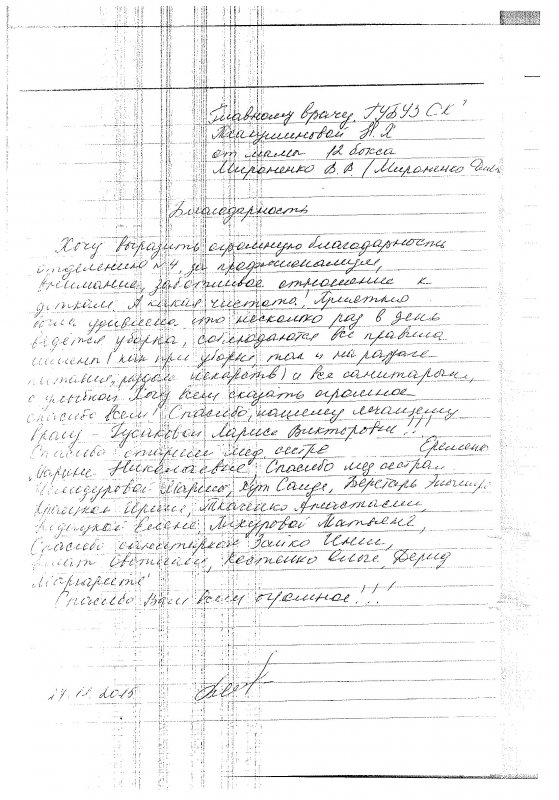 Главному врачу ГУБУЗ СК
Н.Х
от мамы 12 бокса
Мироненко В.В (Мироненко
Благодарность
Хочу выразить огромную благодарность
отделению №4, за профессионализм,
внимание, заботливое отношение к
деткам. А какая чистота! Приятно
была удивлена что несколько раз в день
ведется уборка, соблюдаются все правила
гигиены (как при уборке, так и на раздаче
питания, раздаче лекарств) и все санитарки,
с улыбкой. Хочу всем сказать огромное
спасибо Всем! Спасибо, нашему лечащему
врачу - Гусаковой Ларисе Викторовне!!!
Спасибо старшей мед сестре Еременко
Марине Николаевне. Спасибо мед сестрам
Марине, Саиде,
Ирине, Ткаченко Анастасии,
Елене, Татьяне,
Спасибо санитаркам Зайко Инне,
Светлане, Костенко Ольге,
Маргарите
Спасибо Вам всем огромное!!!
2015